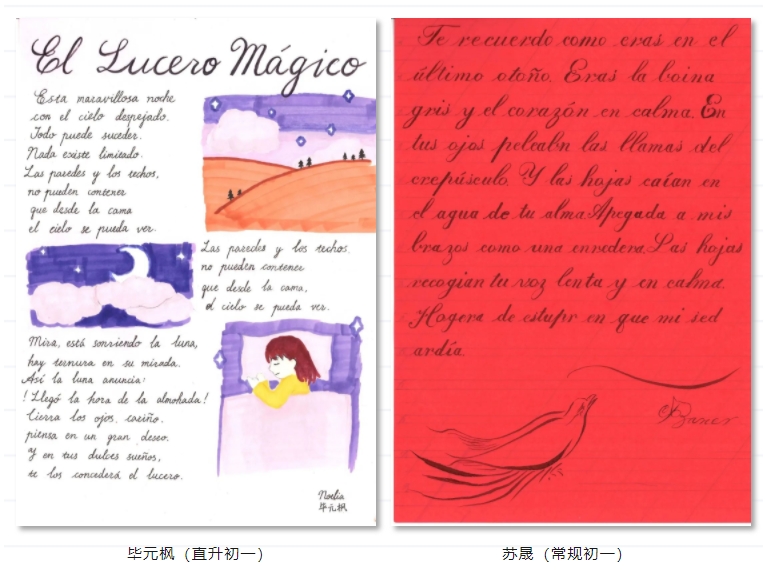 El Lucero Mágico
Esta maravillosa noche
con el cielo despejado.
Todo puede suceder.
Nada existe limitado.
Las paredes y los techos,
no pueden contener
que desde la cama
el cielo se pueda ver.
Las paredes y los techos.
no pueden contener
que desde la cama,
el cielo se pueda ver.
Mira, está sonriendo la luna,
hay ternura en su mirada.
Así la luna anuncia:
! Llegó la hora de la almohada!
Cierra los ojos, cariño.
piensa en un gran deseo.
y en tus dulces sueños,
te los concederá el lucero.
Noelia
毕元枫
Te recuerdo como eras en el
último otoño. Eras la boina
gris y el corazón en calma. En
tus ojos peleabn las llamas del
crepúsculo. Y las hojas caían en
el agua de tu alma Apegada a mis
brazos como una enredera. Las hojas
recogian tu voz lenta y en calma.
Hogera de estupr en que mi sed
ardía.
毕元枫（直升初一）
苏晟（常规初一）